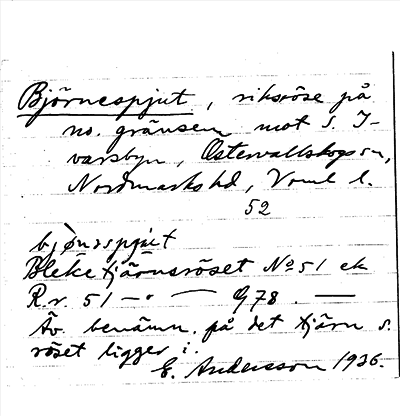 Björnespjut, riksröse på
no. gränsen mot S. I-
varsbyn, Östervallskogs sn,
Nordmarks hd, Vrml. l.
52
bjønnspjut
Bleketjärnsröset No 51 ek
R.r. 51 — " — G 78. —
Äv. benämn. på det tjärn s.
röset ligger i.
E. Andersson 1936.